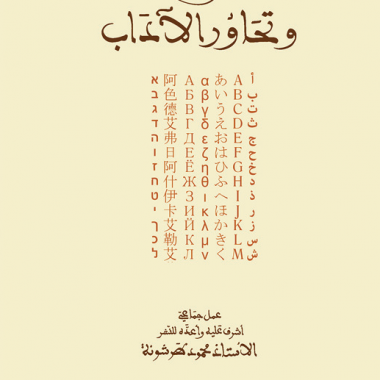 وتحاور الآداب
א 阿 А α あ A أ
ב 色 Б β い B ب
ג 德 В γ う C ت
ד 艾 Г δ え D ث
ה 弗 Д ε お E ج
ו 日 Е ζ は F ح
ז 阿 Ё η ひ G خ
ח 什 Ж θ ふ H د
ט 伊 З ι へ I ذ
י 卡 И κ ほ J ر
ך 艾 Й λ か K ز
כ 勒 К μ き L س
ל 艾 Л ν く M ش
عمل جماعي
أشرف عليه وأعدّه للنشر
الأستاذ محمود طرشونة